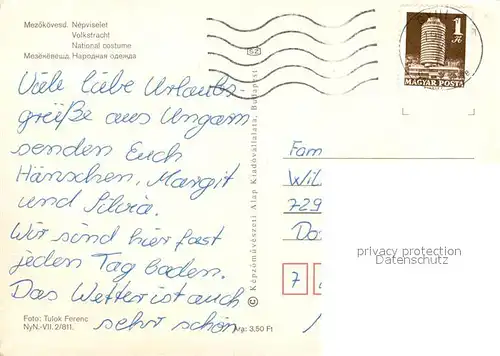 Mezőkövesd. Népviselet
Volkstracht
National costume
Мезёкёвешд. Народная одежда
52
1 Ft
MAGYAR POSTA
Viele liebe Urlaubs-
grüße aus Ungarn
senden Euch
Hänschen, Margit
und Silvia.
Wir sind hier fast
jeden Tag baden.
Das Wetter ist auch
sehr schön.
Foto: Tulok Ferenc
NyN.-VII. 2/811.
Ára: 3,50 Ft
© Képzőművészeti Alap Kiadóvállalata, Budapest
Fam
Wil
729
Do
7
privacy protection
Datenschutz